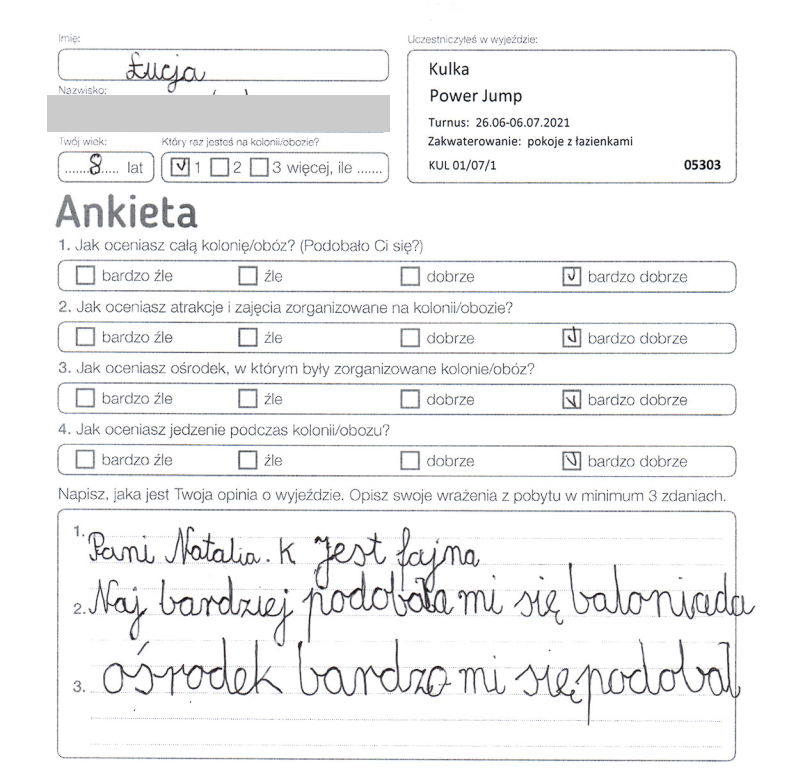 Imię:
Łucja
Nazwisko:
Twój wiek:
8 lat
Który raz jesteś na kolonii/obozie?
1 2 3 więcej, ile .......
Uczestniczyłeś w wyjeździe:
Kulka
Power Jump
Turnus: 26.06-06.07.2021
Zakwaterowanie: pokoje z łazienkami
KUL 01/07/1 05303
Ankieta
1. Jak oceniasz całą kolonię/obóz? (Podobało Ci się?)
bardzo źle źle dobrze bardzo dobrze
2. Jak oceniasz atrakcje i zajęcia zorganizowane na kolonii/obozie?
bardzo źle źle dobrze bardzo dobrze
3. Jak oceniasz ośrodek, w którym były zorganizowane kolonie/obóz?
bardzo źle źle dobrze bardzo dobrze
4. Jak oceniasz jedzenie podczas kolonii/obozu?
bardzo źle źle dobrze bardzo dobrze
Napisz, jaka jest Twoja opinia o wyjeździe. Opisz swoje wrażenia z pobytu w minimum 3 zdaniach.
1. Pani Natalia. K jest fajna
2. Naj bardziej podobała mi się baloniada
3. ośrodek bardzo mi się podobał